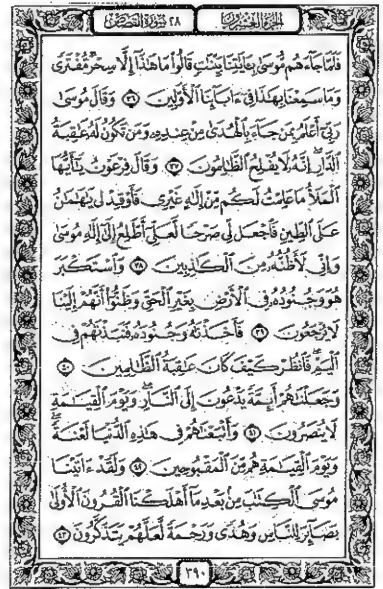 الجزء العشرون ٢٨ سورة القصص
فَلَمَّا جَآءَهُم مُّوسَىٰ بِـَٔايَٰتِنَا بَيِّنَٰتٍ قَالُوا۟ مَا هَٰذَآ إِلَّا سِحْرٌ مُّفْتَرًى
وَمَا سَمِعْنَا بِهَٰذَا فِىٓ ءَابَآئِنَا ٱلْأَوَّلِينَ ٣٦ وَقَالَ مُوسَىٰ
رَبِّىٓ أَعْلَمُ بِمَن جَآءَ بِٱلْهُدَىٰ مِنْ عِندِهِۦ وَمَن تَكُونُ لَهُۥ عَٰقِبَةُ
ٱلدَّارِ إِنَّهُۥ لَا يُفْلِحُ ٱلظَّٰلِمُونَ ٣٧ وَقَالَ فِرْعَوْنُ يَٰٓأَيُّهَا
ٱلْمَلَأُ مَا عَلِمْتُ لَكُم مِّنْ إِلَٰهٍ غَيْرِى فَأَوْقِدْ لِى يَٰهَٰمَٰنُ
عَلَى ٱلطِّينِ فَٱجْعَل لِّى صَرْحًا لَّعَلِّىٓ أَطَّلِعُ إِلَىٰٓ إِلَٰهِ مُوسَىٰ
وَإِنِّى لَأَظُنُّهُۥ مِنَ ٱلْكَٰذِبِينَ ٣٨ وَٱسْتَكْبَرَ
هُوَ وَجُنُودُهُۥ فِى ٱلْأَرْضِ بِغَيْرِ ٱلْحَقِّ وَظَنُّوٓا۟ أَنَّهُمْ إِلَيْنَا
لَا يُرْجَعُونَ ٣٩ فَأَخَذْنَٰهُ وَجُنُودَهُۥ فَنَبَذْنَٰهُمْ فِى
ٱلْيَمِّ فَٱنظُرْ كَيْفَ كَانَ عَٰقِبَةُ ٱلظَّٰلِمِينَ ٤٠
وَجَعَلْنَٰهُمْ أَئِمَّةً يَدْعُونَ إِلَى ٱلنَّارِ وَيَوْمَ ٱلْقِيَٰمَةِ
لَا يُنصَرُونَ ٤١ وَأَتْبَعْنَٰهُمْ فِى هَٰذِهِ ٱلدُّنْيَا لَعْنَةً
وَيَوْمَ ٱلْقِيَٰمَةِ هُم مِّنَ ٱلْمَقْبُوحِينَ ٤٢ وَلَقَدْ ءَاتَيْنَا
مُوسَى ٱلْكِتَٰبَ مِنۢ بَعْدِ مَآ أَهْلَكْنَا ٱلْقُرُونَ ٱلْأُولَىٰ
بَصَآئِرَ لِلنَّاسِ وَهُدًى وَرَحْمَةً لَّعَلَّهُمْ يَتَذَكَّرُونَ ٤٣
٣٩٠